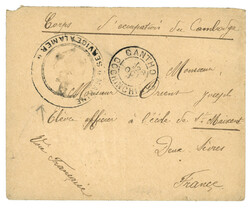 Corps d'occupation du Cambodge
SERVICE A LA MER
CANTHO
COCHINCHINE
Monsieur
Monsieur Joseph
Elève officier à l'école de St Maixent
Deux Sèvres
Voie Française
France